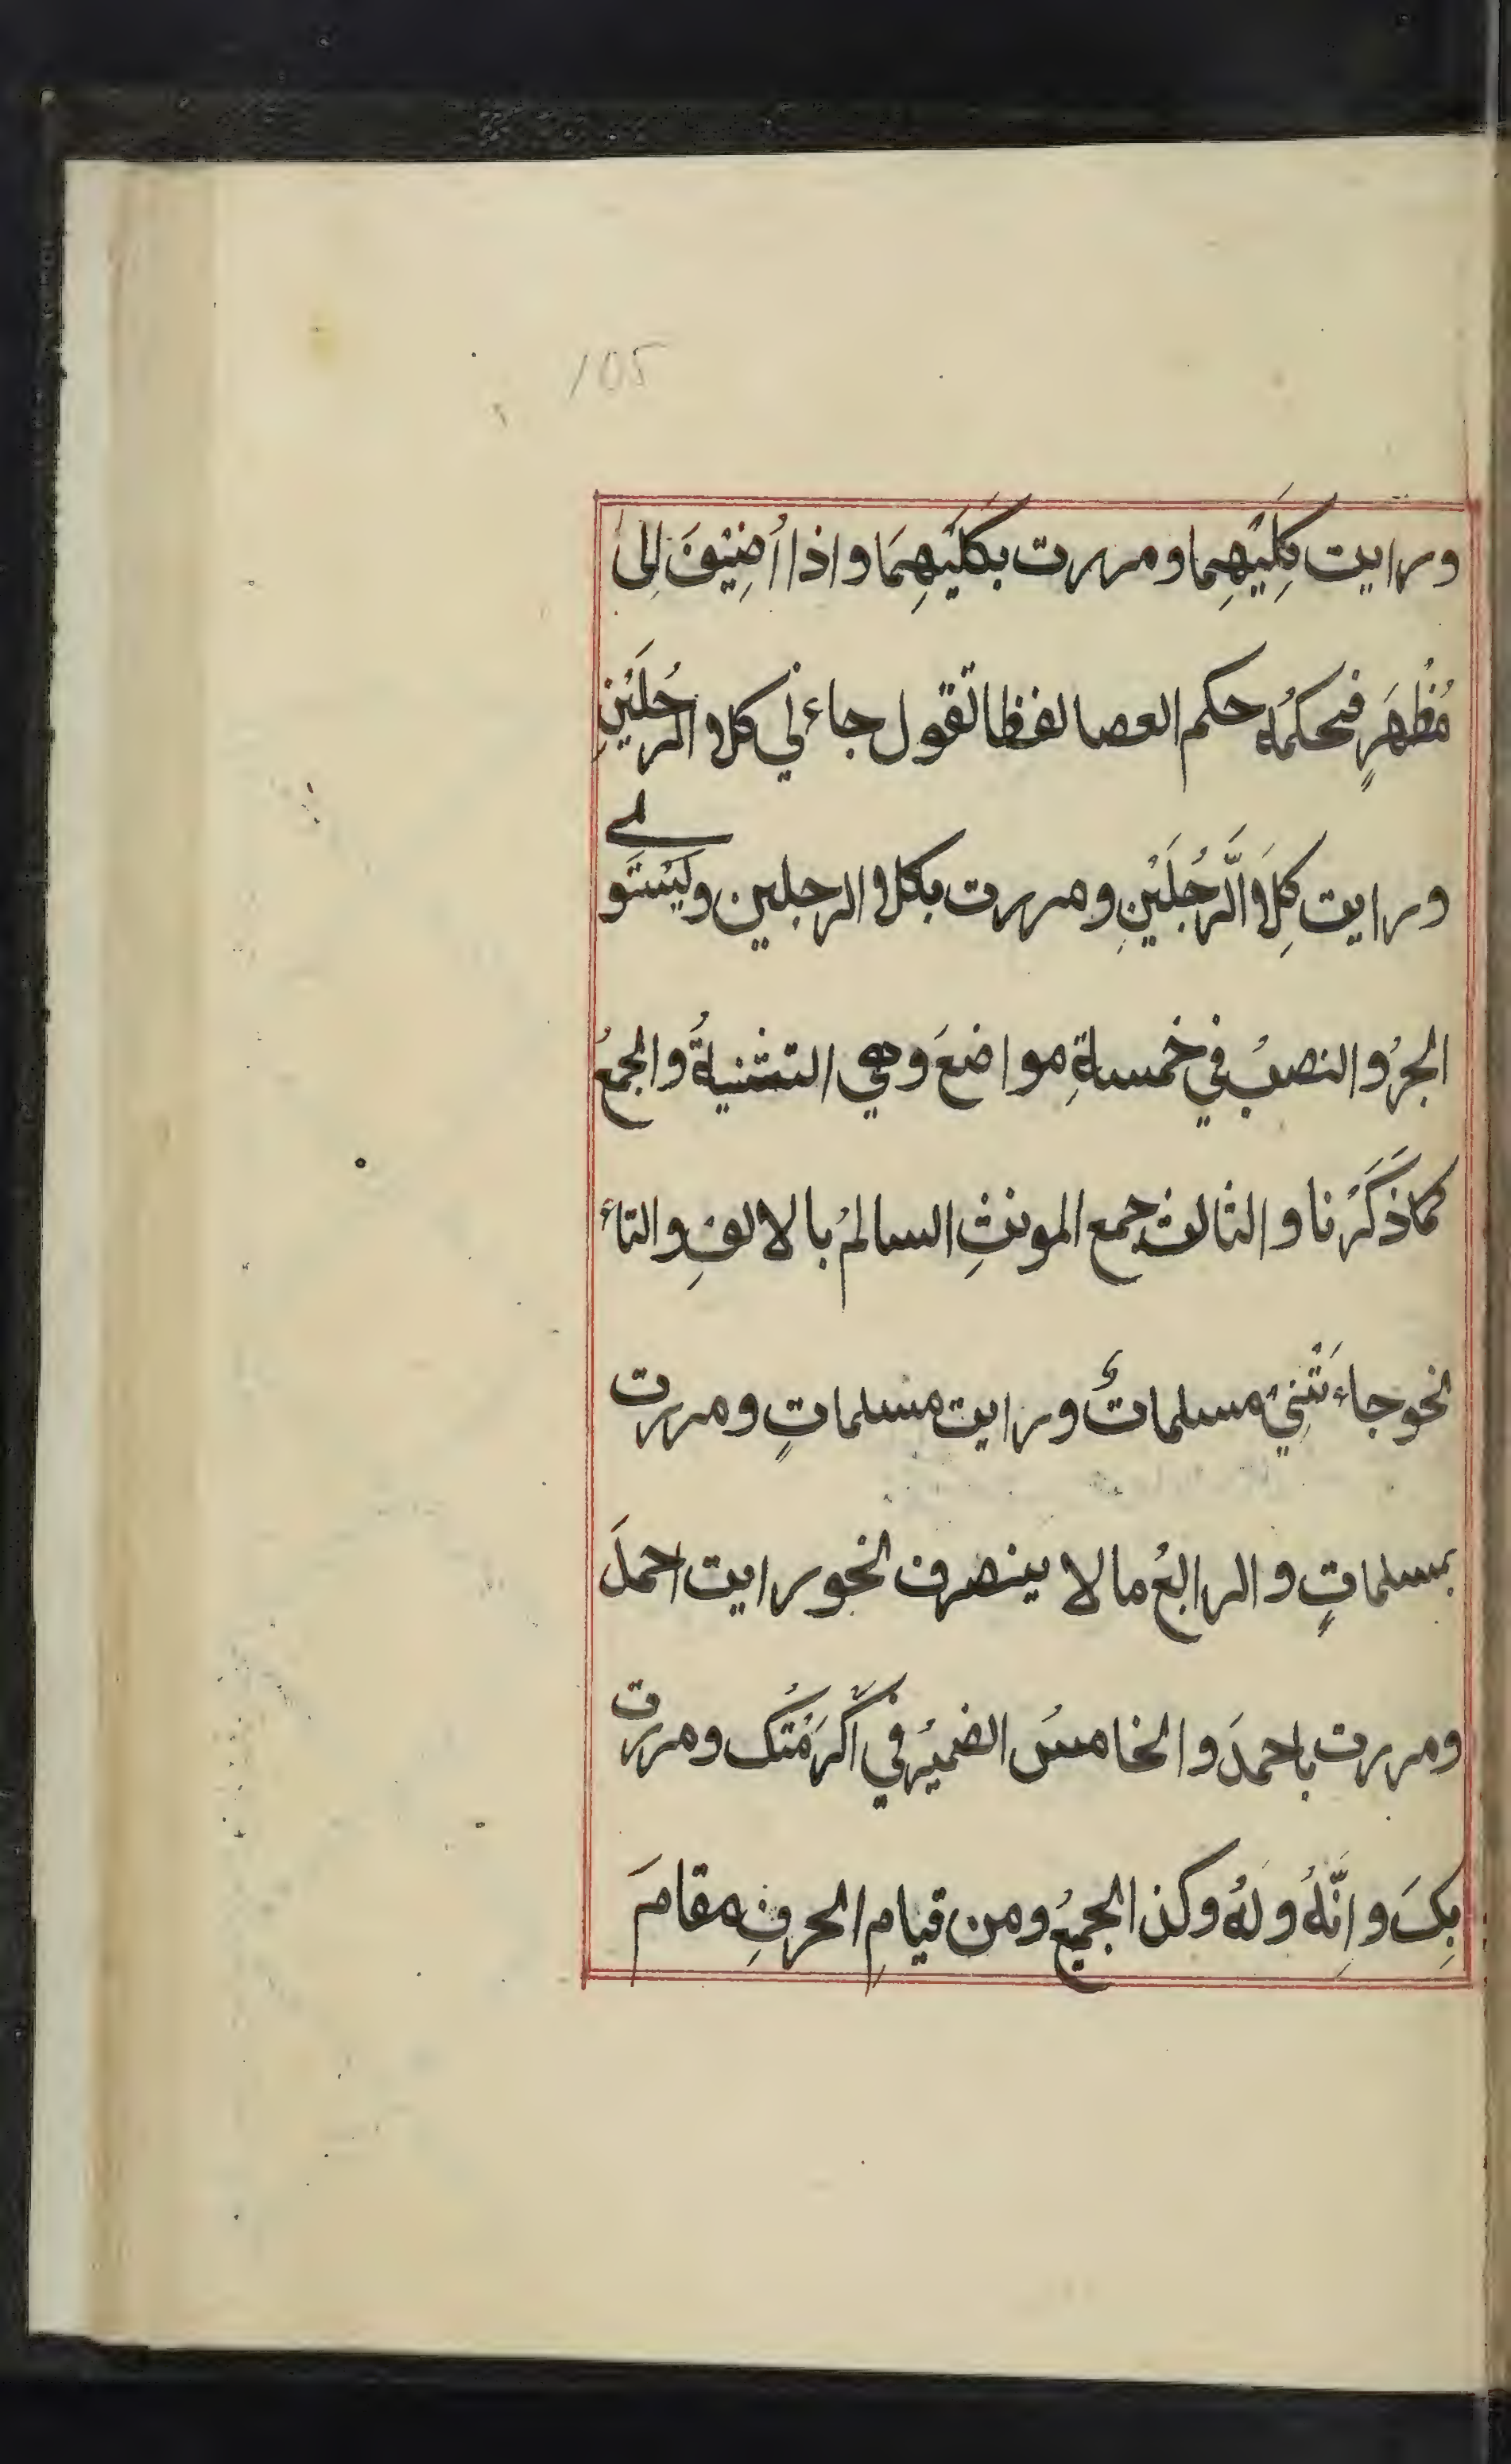 105
ورايت كِلَيْهِما ومررت بكلَيْهِمَا واذا أُضِيْفَ اِلى
مُظْهَرٍ فحكمُه حكم العصا لفظا تقول جاءني كلا الرجُلَيْنِ
ورايت كِلَا الَّرجُلَيْنِ ومررت بكلا الرجلين ويَسْتَوى
الجرُ والنصبُ في خمسةِ مواضعَ وهي التثنيةُ والجمعُ
كماذَكَرْنا والثالث جمع المونثِ السالمُ بالالفِ والتاء
نحو جاءَتْنِيْ مسلماتٌ ورايت مسلماتٍ ومررت
بمسلماتٍ والرابعُ مالا ينصرف نحو رايت احمدَ
ومررت باحمدَ والخامسُ الضميرُ في اَكْرَمْتُك ومررت
بِكَ واِنَّهُ ولَهُ وكذا الجميعُ ومن قيامِ الحرفِ مقامَ